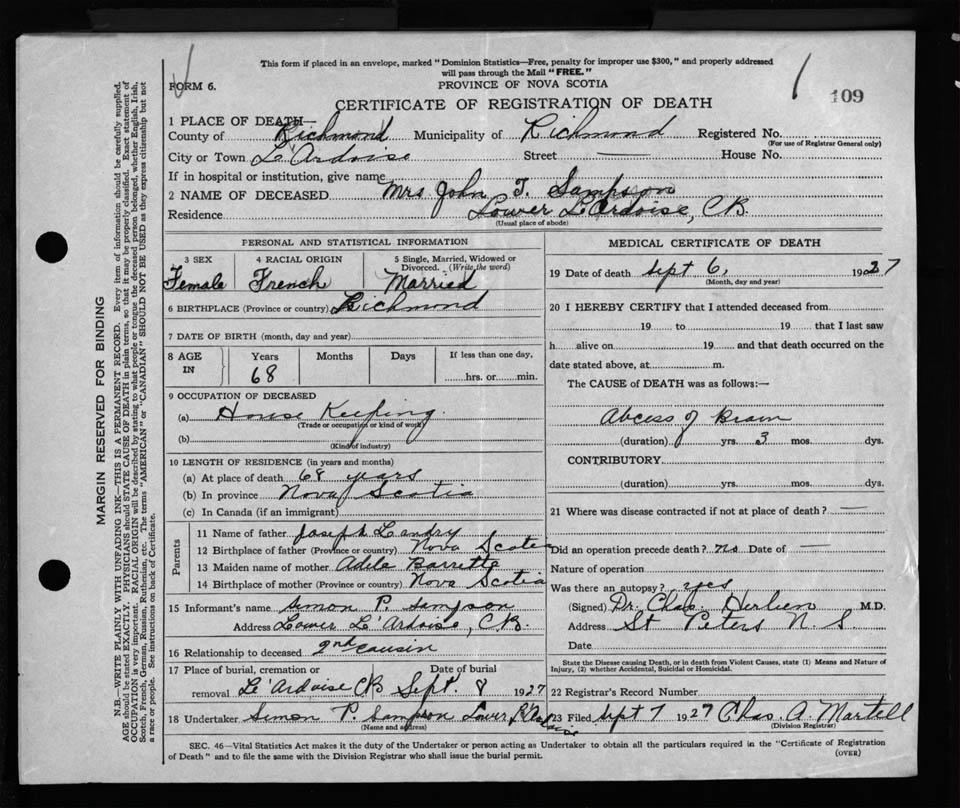 This form if placed in an envelope, marked "Dominion Statistics—Free, penalty for improper use $300," and properly addressed
will pass through the Mail "FREE."
FORM 6.
PROVINCE OF NOVA SCOTIA
109
CERTIFICATE OF REGISTRATION OF DEATH
1 PLACE OF DEATH—
County of Richmond Municipality of Richmond Registered No.
(For use of Registrar General only)
City or Town L'Ardoise Street — House No.
If in hospital or institution, give name
2 NAME OF DECEASED Mrs John T. Sampson
Residence Lower L'Ardoise, CB.
(Usual place of abode)
PERSONAL AND STATISTICAL INFORMATION
3 SEX 4 RACIAL ORIGIN 5 Single, Married, Widowed or
Divorced. (Write the word)
Female French Married
6 BIRTHPLACE (Province or country) Richmond
7 DATE OF BIRTH (month, day and year)
8 AGE IN Years Months Days If less than one day,
68 hrs. or min.
9 OCCUPATION OF DECEASED
(a) House Keeping
(Trade or occupation or kind of work)
(b)
(Kind of industry)
10 LENGTH OF RESIDENCE (in years and months)
(a) At place of death 68 years
(b) In province Nova Scotia
(c) In Canada (if an immigrant)
Parents
11 Name of father Joseph Landry
12 Birthplace of father (Province or country) Nova Scotia
13 Maiden name of mother Adele Barrette
14 Birthplace of mother (Province or country) Nova Scotia
15 Informant's name Simon P. Sampson
Address Lower L'Ardoise, CB.
16 Relationship to deceased 2nd causin
17 Place of burial, cremation or Date of burial
removal L'Ardoise CB Sept. 8 1927
18 Undertaker Simon P. Sampson Lower L'Ardoise
(Name and address)
MEDICAL CERTIFICATE OF DEATH
19 Date of death Sept 6, 1927
(Month, day and year)
20 I HEREBY CERTIFY that I attended deceased from
19 to 19 that I last saw
h alive on 19 and that death occurred on the
date stated above, at m.
The CAUSE of DEATH was as follows:—
Abcess of Brain
(duration) yrs. 3 mos. dys.
CONTRIBUTORY
(duration) yrs. mos. dys.
21 Where was disease contracted if not at place of death? —
Did an operation precede death? no Date of —
Nature of operation
Was there an autopsy? yes
(Signed) Dr. Chas. M.D.
Address St Peters N S.
Date
State the Disease causing Death, or in Death from Violent Causes, state (1) Means and Nature of
Injury, (2) whether Accidental, Suicidal or Homicidal.
22 Registrar's Record Number
23 Filed Sept 7 1927 Chas. A. Martell
(Division Registrar)
SEC. 46—Vital Statistics Act makes it the duty of the Undertaker or person acting as Undertaker to obtain all the particulars required in the "Certificate of Registration
of Death" and to file the same with the Division Registrar who shall issue the burial permit.
(OVER)
MARGIN RESERVED FOR BINDING
N.B.—WRITE PLAINLY WITH UNFADING INK—THIS IS A PERMANENT RECORD. Every item of information should be carefully supplied.
AGE should be stated EXACTLY. PHYSICIANS should STATE CAUSE OF DEATH in plain terms, so that it may be properly classified. Exact statement of
OCCUPATION is very important. RACIAL ORIGIN will be described by stating to what people or tongue the deceased person belonged, whether English, Irish,
Scotch, French, German, Russian, Ruthenian, etc. The terms "AMERICAN" or "CANADIAN" SHOULD NOT BE USED as they express citizenship but not
a race or people. See instructions on back of Certificate.